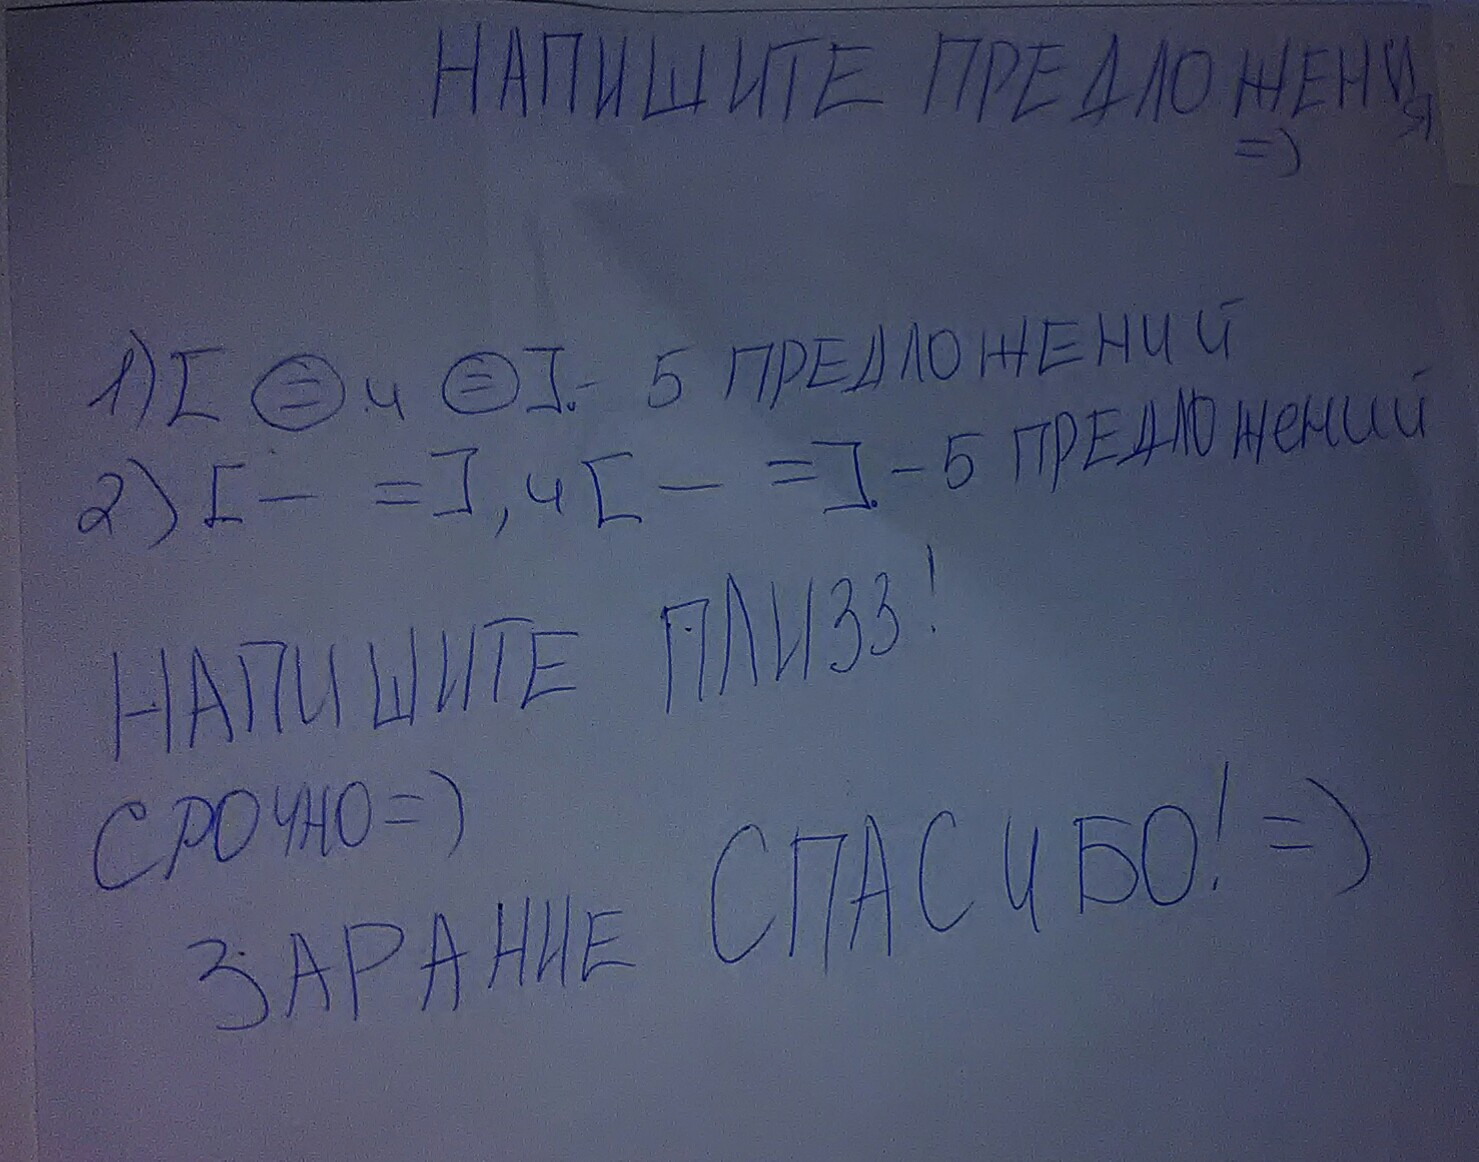 НАПИШИТЕ ПРЕДЛОЖЕНИЯ
=)
1) [ ⊜ и ⊜ ]. - 5 ПРЕДЛОЖЕНИЙ
2) [ — = ], и [ — = ]. - 5 ПРЕДЛОЖЕНИЙ
НАПИШИТЕ ПЛИЗЗ!
СРОЧНО=)
ЗАРАНИЕ СПАСИБО! =)